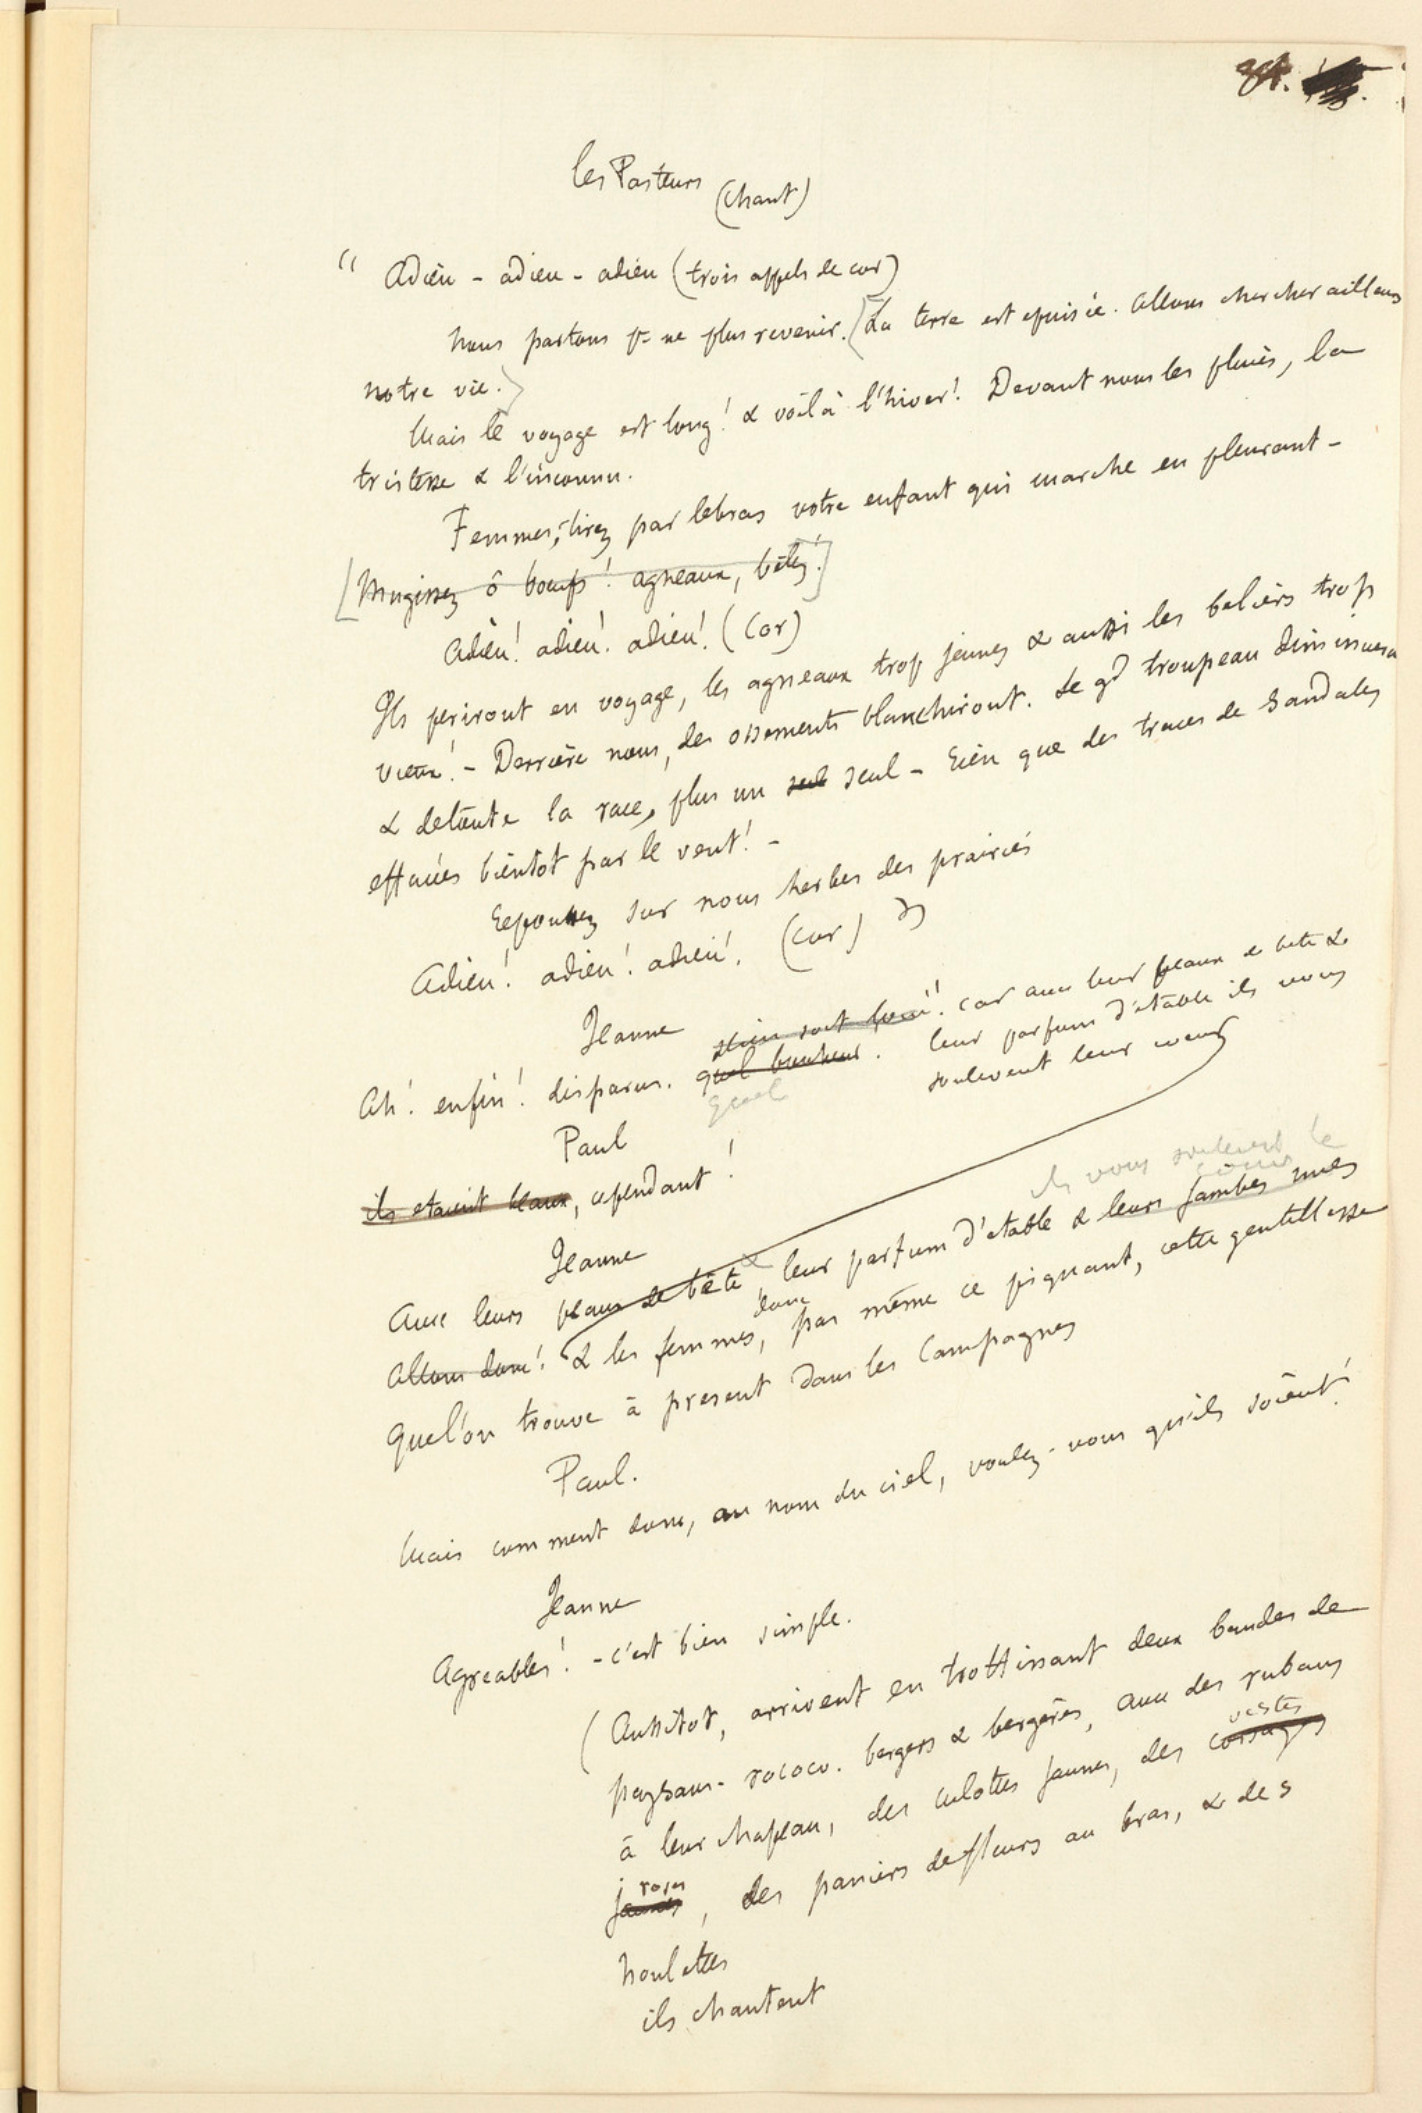 les Pasteurs
(chant)
" Adieu - adieu - adieu (trois appels de cor)
Nous partons pr ne plus revenir. (La terre est epuisée. Allons chercher ailleurs
notre vie.)
Mais le voyage est long! & voilà l'hiver! Devant nous les pluies, la
tristesse & l'inconnu.
Femmes, tirez par le bras votre enfant qui marche en pleurant -
[Mugissez ô boeufs! agneaux, bêlez!]
Adieu! adieu! adieu! (Cor)
Ils periront en voyage, les agneaux trop jeunes & aussi les beliers trop
vieux! - Derrière nous, des ossements blanchiront. Le gd troupeau diminuera
& de toute la race, plus un seul seul - Rien que des traces de sandales
effacées bientot par le vent! -
Repoussez sur nous herbes des prairies
Adieu! adieu! adieu! (cor) "
Jeanne
car avec leur peaux de bete &
Ah! enfin! disparus. quel bonheur. leur parfum d'étable ils vous
Quel
soulevent leur coeur
Paul
ils etaient beaux, cependant!
ils vous soulevent le
coeur
Jeanne
Avec leurs peaux de bête & leur parfum d'etable & leurs jambes nues
Allons donc! & les femmes, donc pas même ce piquant, cette gentillesse
que l'on trouve à present dans les campagnes
Paul.
Mais comment donc, au nom du ciel, voulez-vous qu'ils soient!
Jeanne
Agreables! - c'est bien simple.
(Aussitot, arrivent en trottinant deux bandes de
paysans - rococo. bergers & bergères, avec des rubans
à leur chapeau, des culottes jaunes, des corsages vestes
jaunes roses, des paniers de fleurs au bras, & des
houlettes
ils chantent